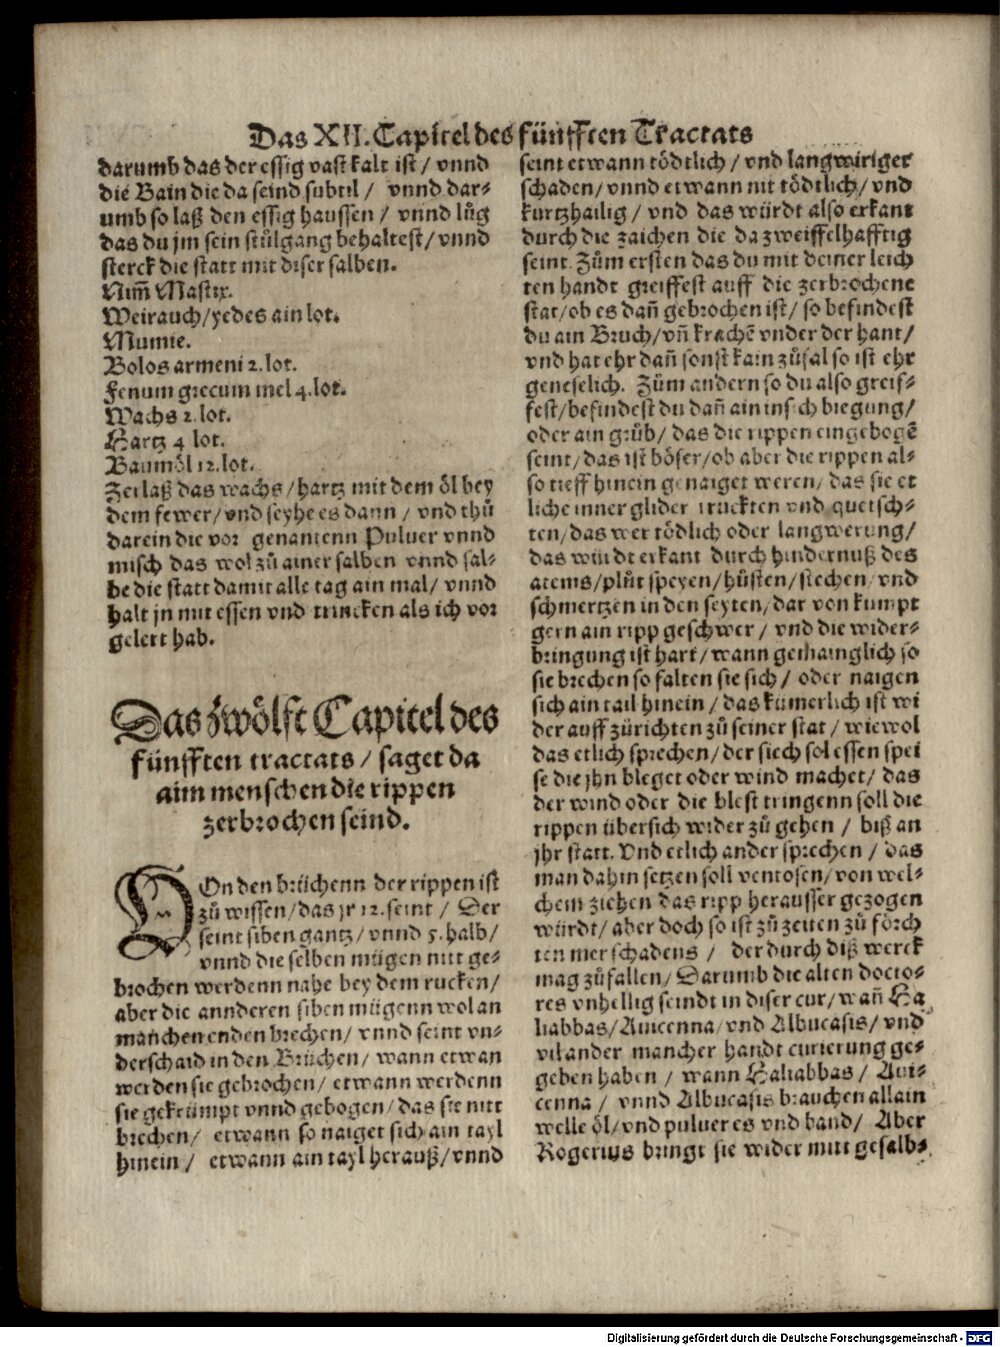 Das XII. Capitel des fünfften Tractats
darumb das der essig vast kalt ist / vnnd
die Bain die da seind subtil / vnnd dar-
umb so laß den essig haussen / vnnd lůg
das du jm sein stůlgang behaltest / vnnd
sterck die statt mit diser salben.
Nim̄ Mastix.
Weirauch / yedes ain lot.
Mumie.
Bolos armeni 2. lot.
Fenum grecum mel 4. lot.
Wachs 2. lot.
Hartz 4 lot.
Baumöl 12. lot.
Zerlaß das wachs / hartz mit dem öl bey
dem fewer / vnd seyhe es dann / vnd thů
darein die vor genantenn Puluer vnnd
misch das wol zů ainer salben vnnd sal-
be die statt damit alle tag ain mal / vnnd
halt jn mit essen vnd trincken als ich vor
gelert hab.
Das zwölfft Capitel des
fünfften tractats / saget da
aim menschen die rippen
zerbrochen seind.
VOn den brüchenn der rippen ist
zů wissen / das jr 12. seint / Der
seint siben gantz / vnnd 5. halb /
vnnd die selben mügen nit ge-
brochen werdenn nahe bey dem rucken /
aber die annderen siben mügenn wol an
man̄chen enden brechen / vnnd seint vn-
derschaid in den Brüchen / wann etwan
werden sie gebrochen / etwann werdenn
sie gekrümpt vnnd gebogen / das sie nitt
brechen / etwann so naiget sich ain tayl
hinein / etwann ain tayl herauß / vnnd
seint etwann tödtlich / vnd langwiriger
schaden / vnnd etwann nit tödtlich / vnd
kurtzhailig / vnd das würdt also erkant
durch die zaichen die da zweiffelhafftig
seint. Zům ersten das du mit deiner leich
ten handt greiffest auff die zerbrochene
stat / ob es dan̄ gebrochen ist / so befindest
du ain Bruch / vn̄ krachē vnder der hant /
vnd hat ehr dan̄ sonst kain zůfal so ist ehr
geneselich. Zům andern so du also greif-
fest / befindest du dan̄ ain in sich biegung /
oder ain grůb / das die rippen eingebogē
seint / das ist böser / ob aber die rippen al-
so tieff hinein genaiget weren / das sie et
liche inner glider truckten vnd quetsch-
ten / das wer tödlich oder langwerung /
das würdt erkant durch hindernuß des
atems / plůt speyen / hůsten / stechen / vnd
schmertzen in den seyten / dar von kumpt
gern ain ripp geschwer / vnd die wider-
bringung ist hart / wann gemainglich so
sie brechen so falten sie sich / oder naigen
sich ain tail hinein / das kümerlich ist wi
der auff zůrichten zů seiner stat / wiewol
das etlich sprechen / der siech sol essen spei
se die jhn bleget oder wind machet / das
der wind oder die blest tringenn soll die
rippen übersich wider zů gehen / biß an
jhr statt. Vnd etlich ander sprechen / das
man dahin setzen soll ventosen / von wel-
chem ziehen das ripp herausser gezogen
würdt / aber doch so ist zů zeiten zů förch
ten mer schadens / der durch diß werck
mag zůfallen / Darumb die alten docto-
res vnhellig seindt in diser cur / wan̄ Ha
liabbas / Auicenna / vnd Albucasis / vnd
vil ander mancher handt curierung ge-
geben haben / wann Haliabbas / Aui-
cenna / vnnd Albucasis brauchen allain
welle öl / vnd puluer es vnd band / Aber
Rogerius bringt sie wider mitt gesalb-
Digitalisierung gefördert durch die Deutsche Forschungsgemeinschaft - DFG